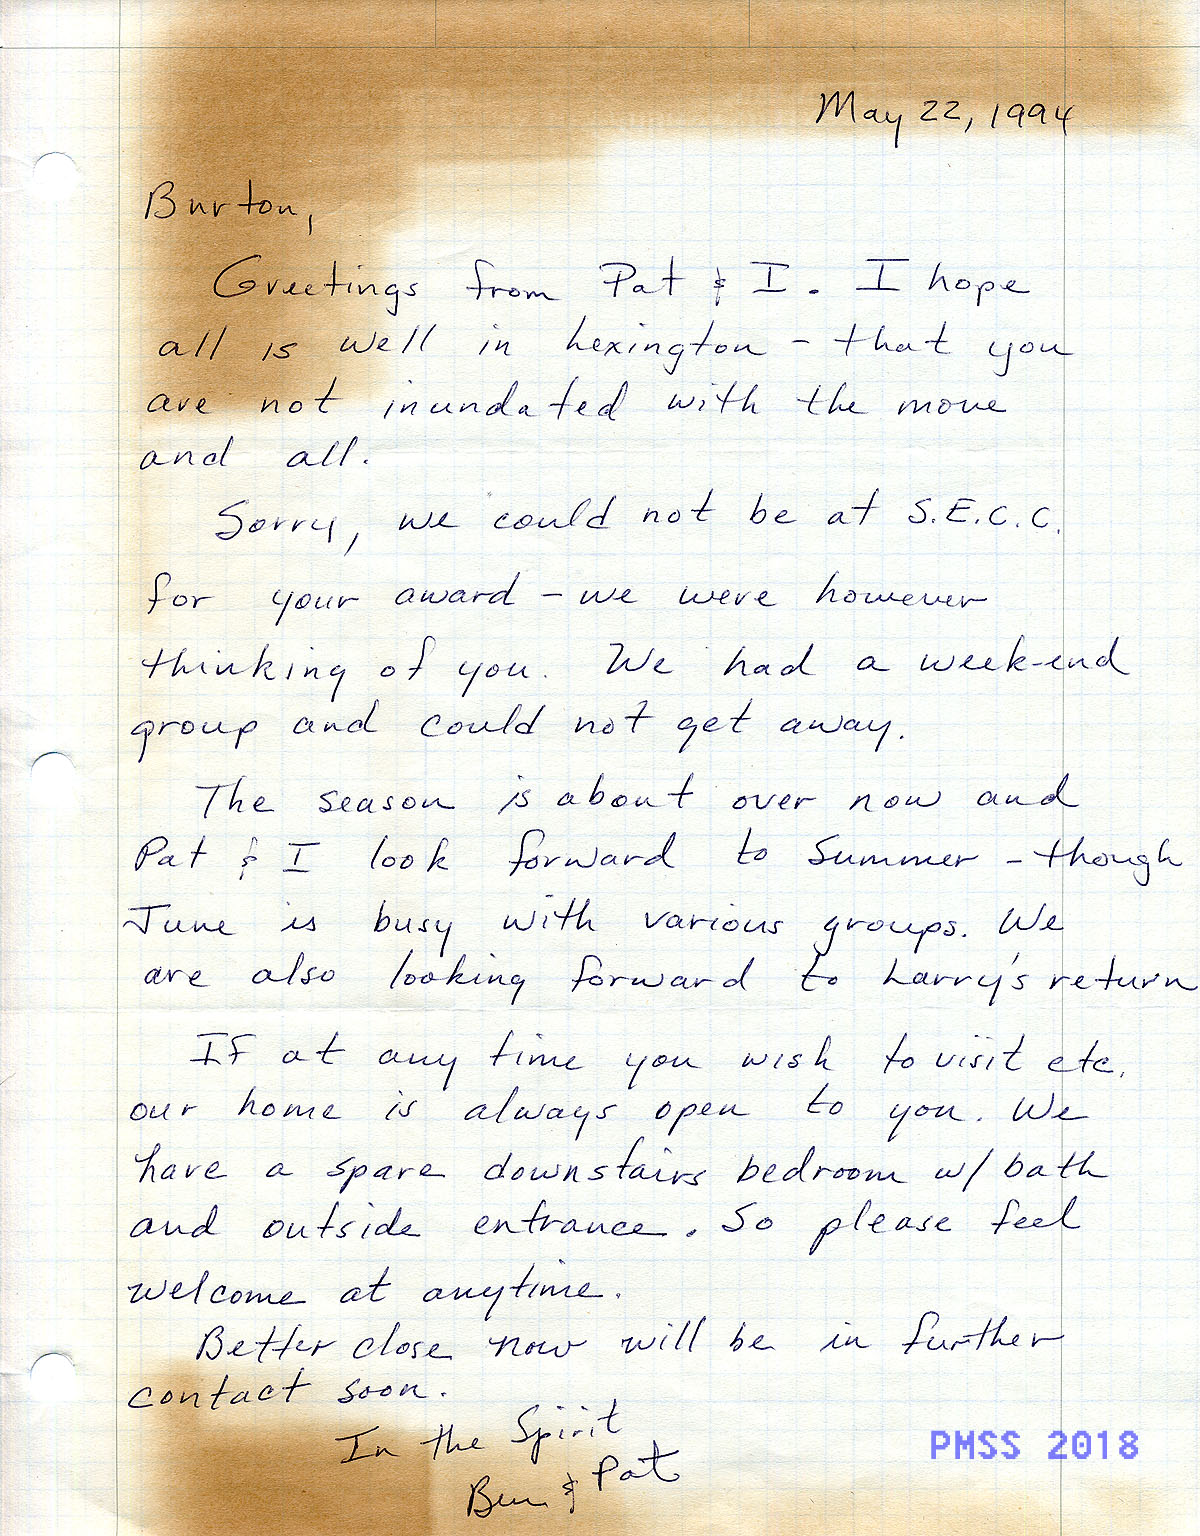 May 22, 1994
Burton,
Greetings from Pat & I. I hope
all is well in Lexington - that you
are not inundated with the move
and all.
Sorry, we could not be at S.E.C.C.
for your award - we were however
thinking of you. We had a week-end
group and could not get away.
The season is about over now and
Pat & I look forward to Summer - though
June is busy with various groups. We
are also looking forward to Larry's return
If at any time you wish to visit etc.
our home is always open to you. We
have a spare downstairs bedroom w/ bath
and outside entrance. So please feel
welcome at anytime.
Better close now will be in further
contact soon.
In the Spirit
Ben & Pat
PMSS 2018